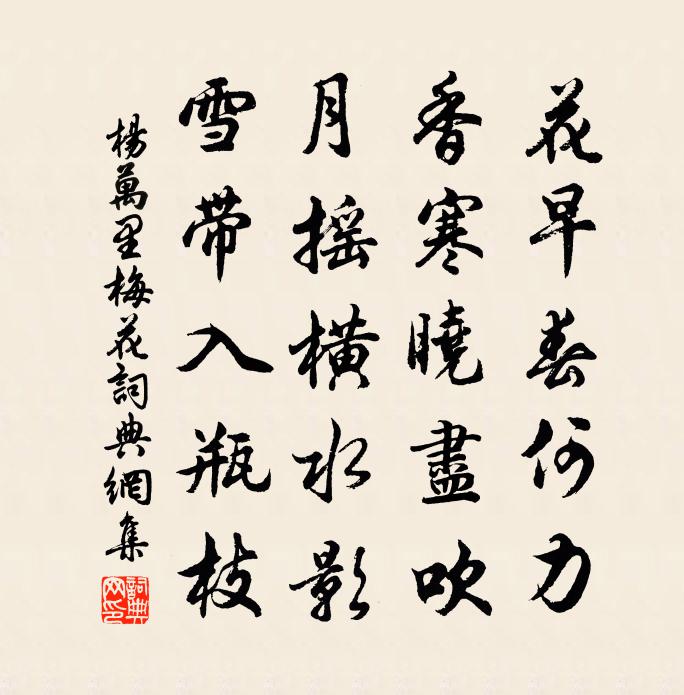 花早春何力
香寒曉盡吹
月摇橫水影
雪带入瓶枝
楊萬里梅花詞典網集
詞典網印